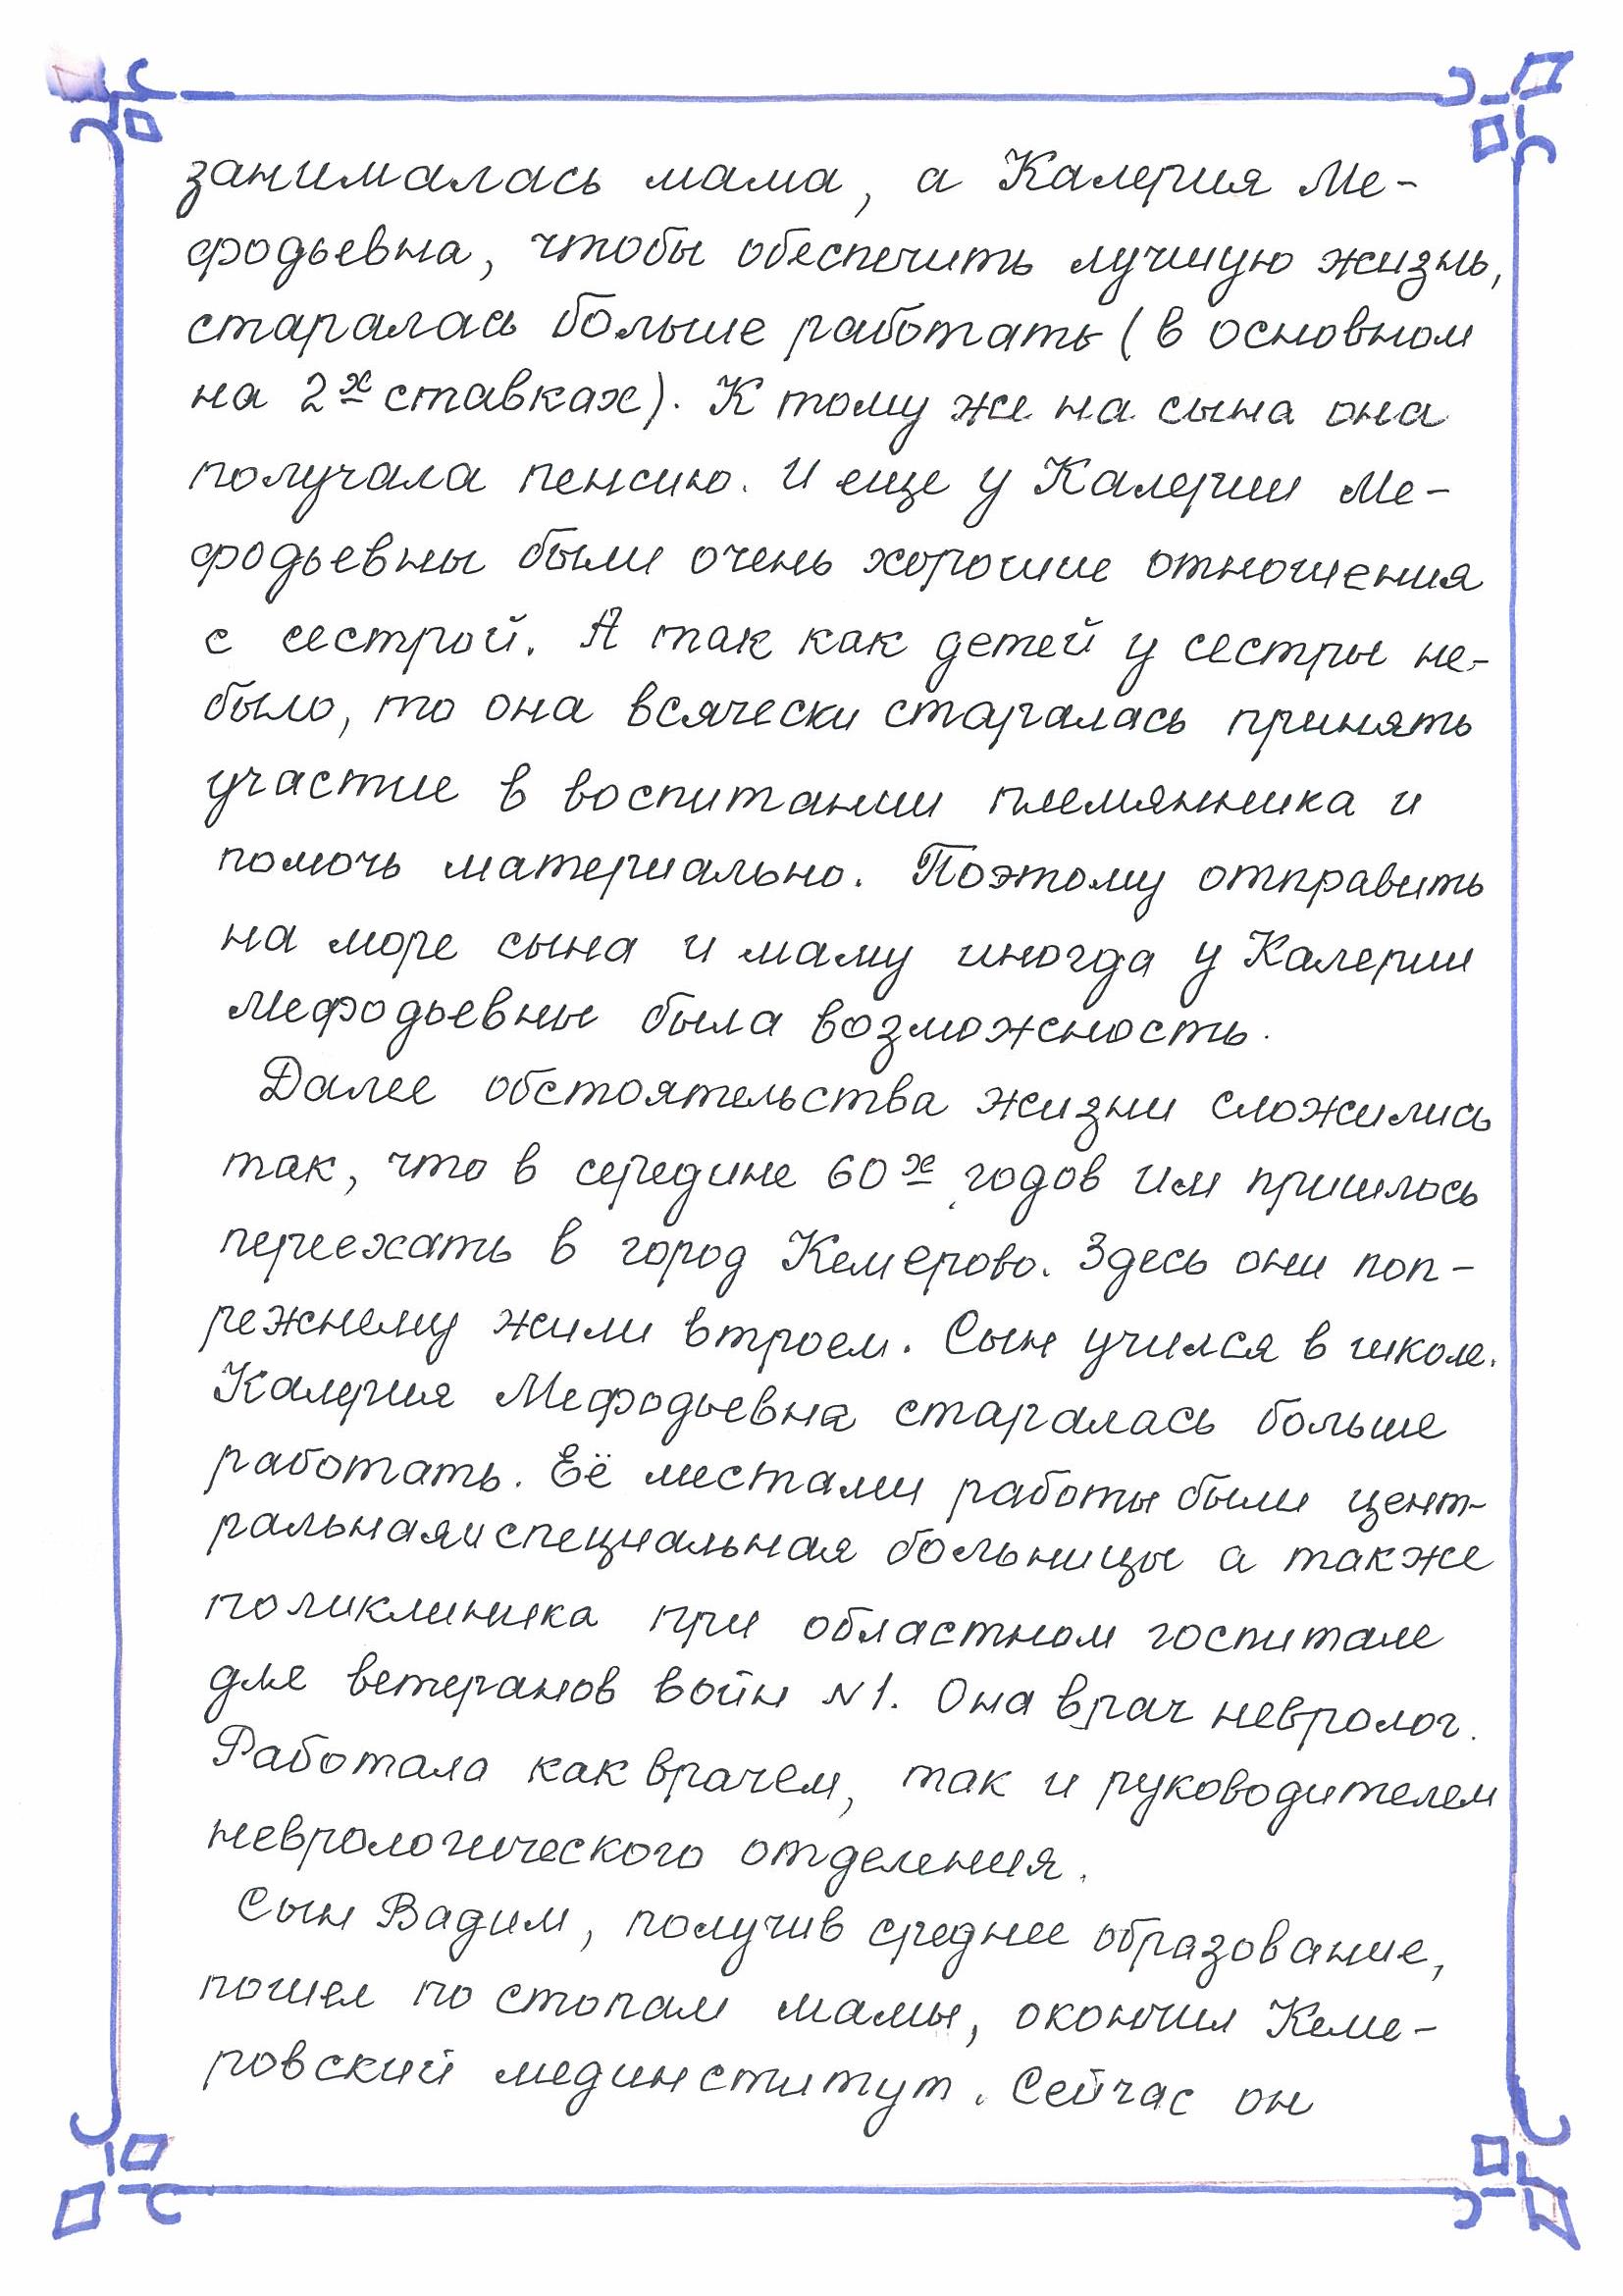 занималась мама, а Калерия Ме-
фодьевна, чтобы обеспечить лучшую жизнь,
старалась больше работать (в основном
на 2х ставках). К тому же на сына она
получала пенсию. И еще у Калерии Ме-
фодьевны были очень хорошие отношения
с сестрой. А так как детей у сестры не-
было, то она всячески старалась принять
участие в воспитании племянника и
помочь материально. Поэтому отправить
на море сына и маму иногда у Калерии
Мефодьевны была возможность.
Далее обстоятельства жизни сложились
так, что в середине 60х годов им пришлось
переехать в город Кемерово. Здесь они поп-
режнему жили втроем. Сын учился в школе.
Калерия Мефодьевна старалась больше
работать. Её местами работы были цент-
ральная и специальная больницы а также
поликлиника при областном госпитале
для ветеранов войн №1. Она врач невролог.
Работала как врачем, так и руководителем
неврологического отделения.
Сын Вадим, получив среднее образование,
пошел по стопам мамы, окончил Кеме-
ровский мединститут. Сейчас он